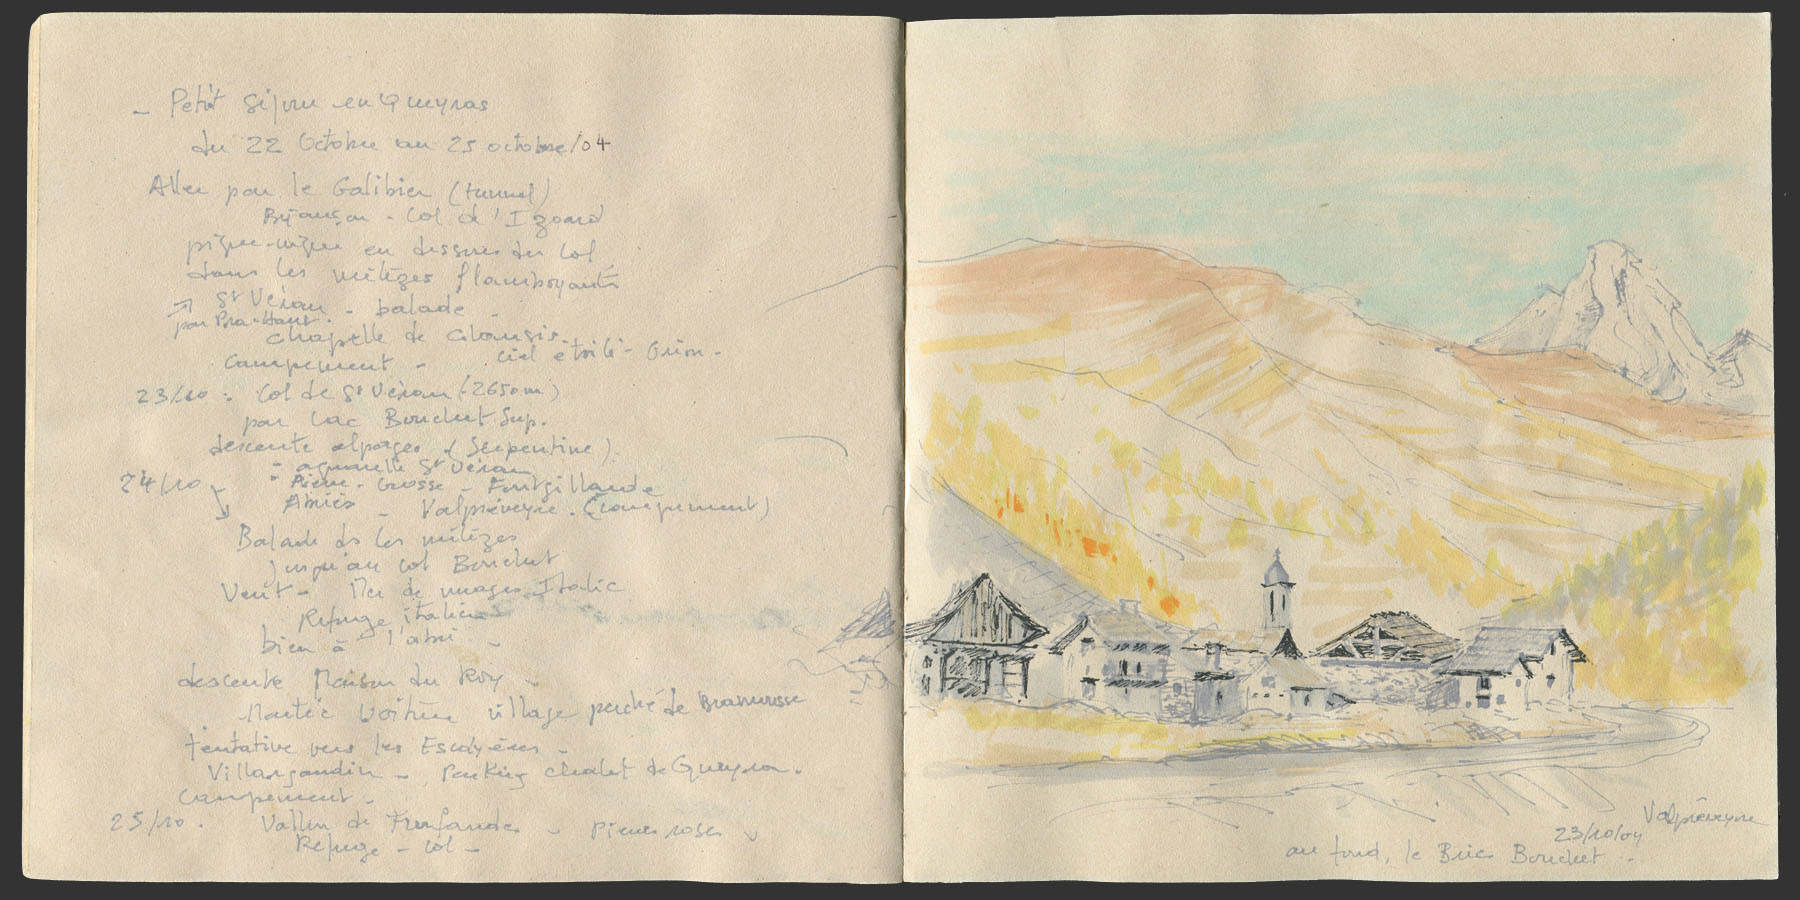 - Petit séjour en Queyras
du 22 Octobre au 25 octobre/04
Aller par le Galibier (tunnel)
Briançon - Col de l'Izoard
pique-nique en dessous du Col
dans les mélèzes flamboyants
↗ St Véran - balade -
par Pra-Haut.
chapelle de Clausis.
campement - ciel étoilé - Orion -
23/10 : Col de St Véran (2650m)
par Lac Bouchet Sup.
descente alpages (Serpentine)
- aquarelle St Véran
24/10 - Pierre-Grosse - Fontgillarde
Abriès - Valpréveyre. (campement)
Balade ds les mélèzes
jusqu'au col Bouchet
Vent - Mer de nuages Italie
Refuge italien
bien à l'abri -
descente Maison du Roy -
Montée Voiture village perché de Bramousse
tentative vers les Escoyères -
Villargaudin - Parking chalet de Queyron.
Campement -
25/10 . Vallon de Furfande - pierres roses -
Refuge - Col -
Valpréveyre
23/10/04
au fond, le Bric Bouchet -